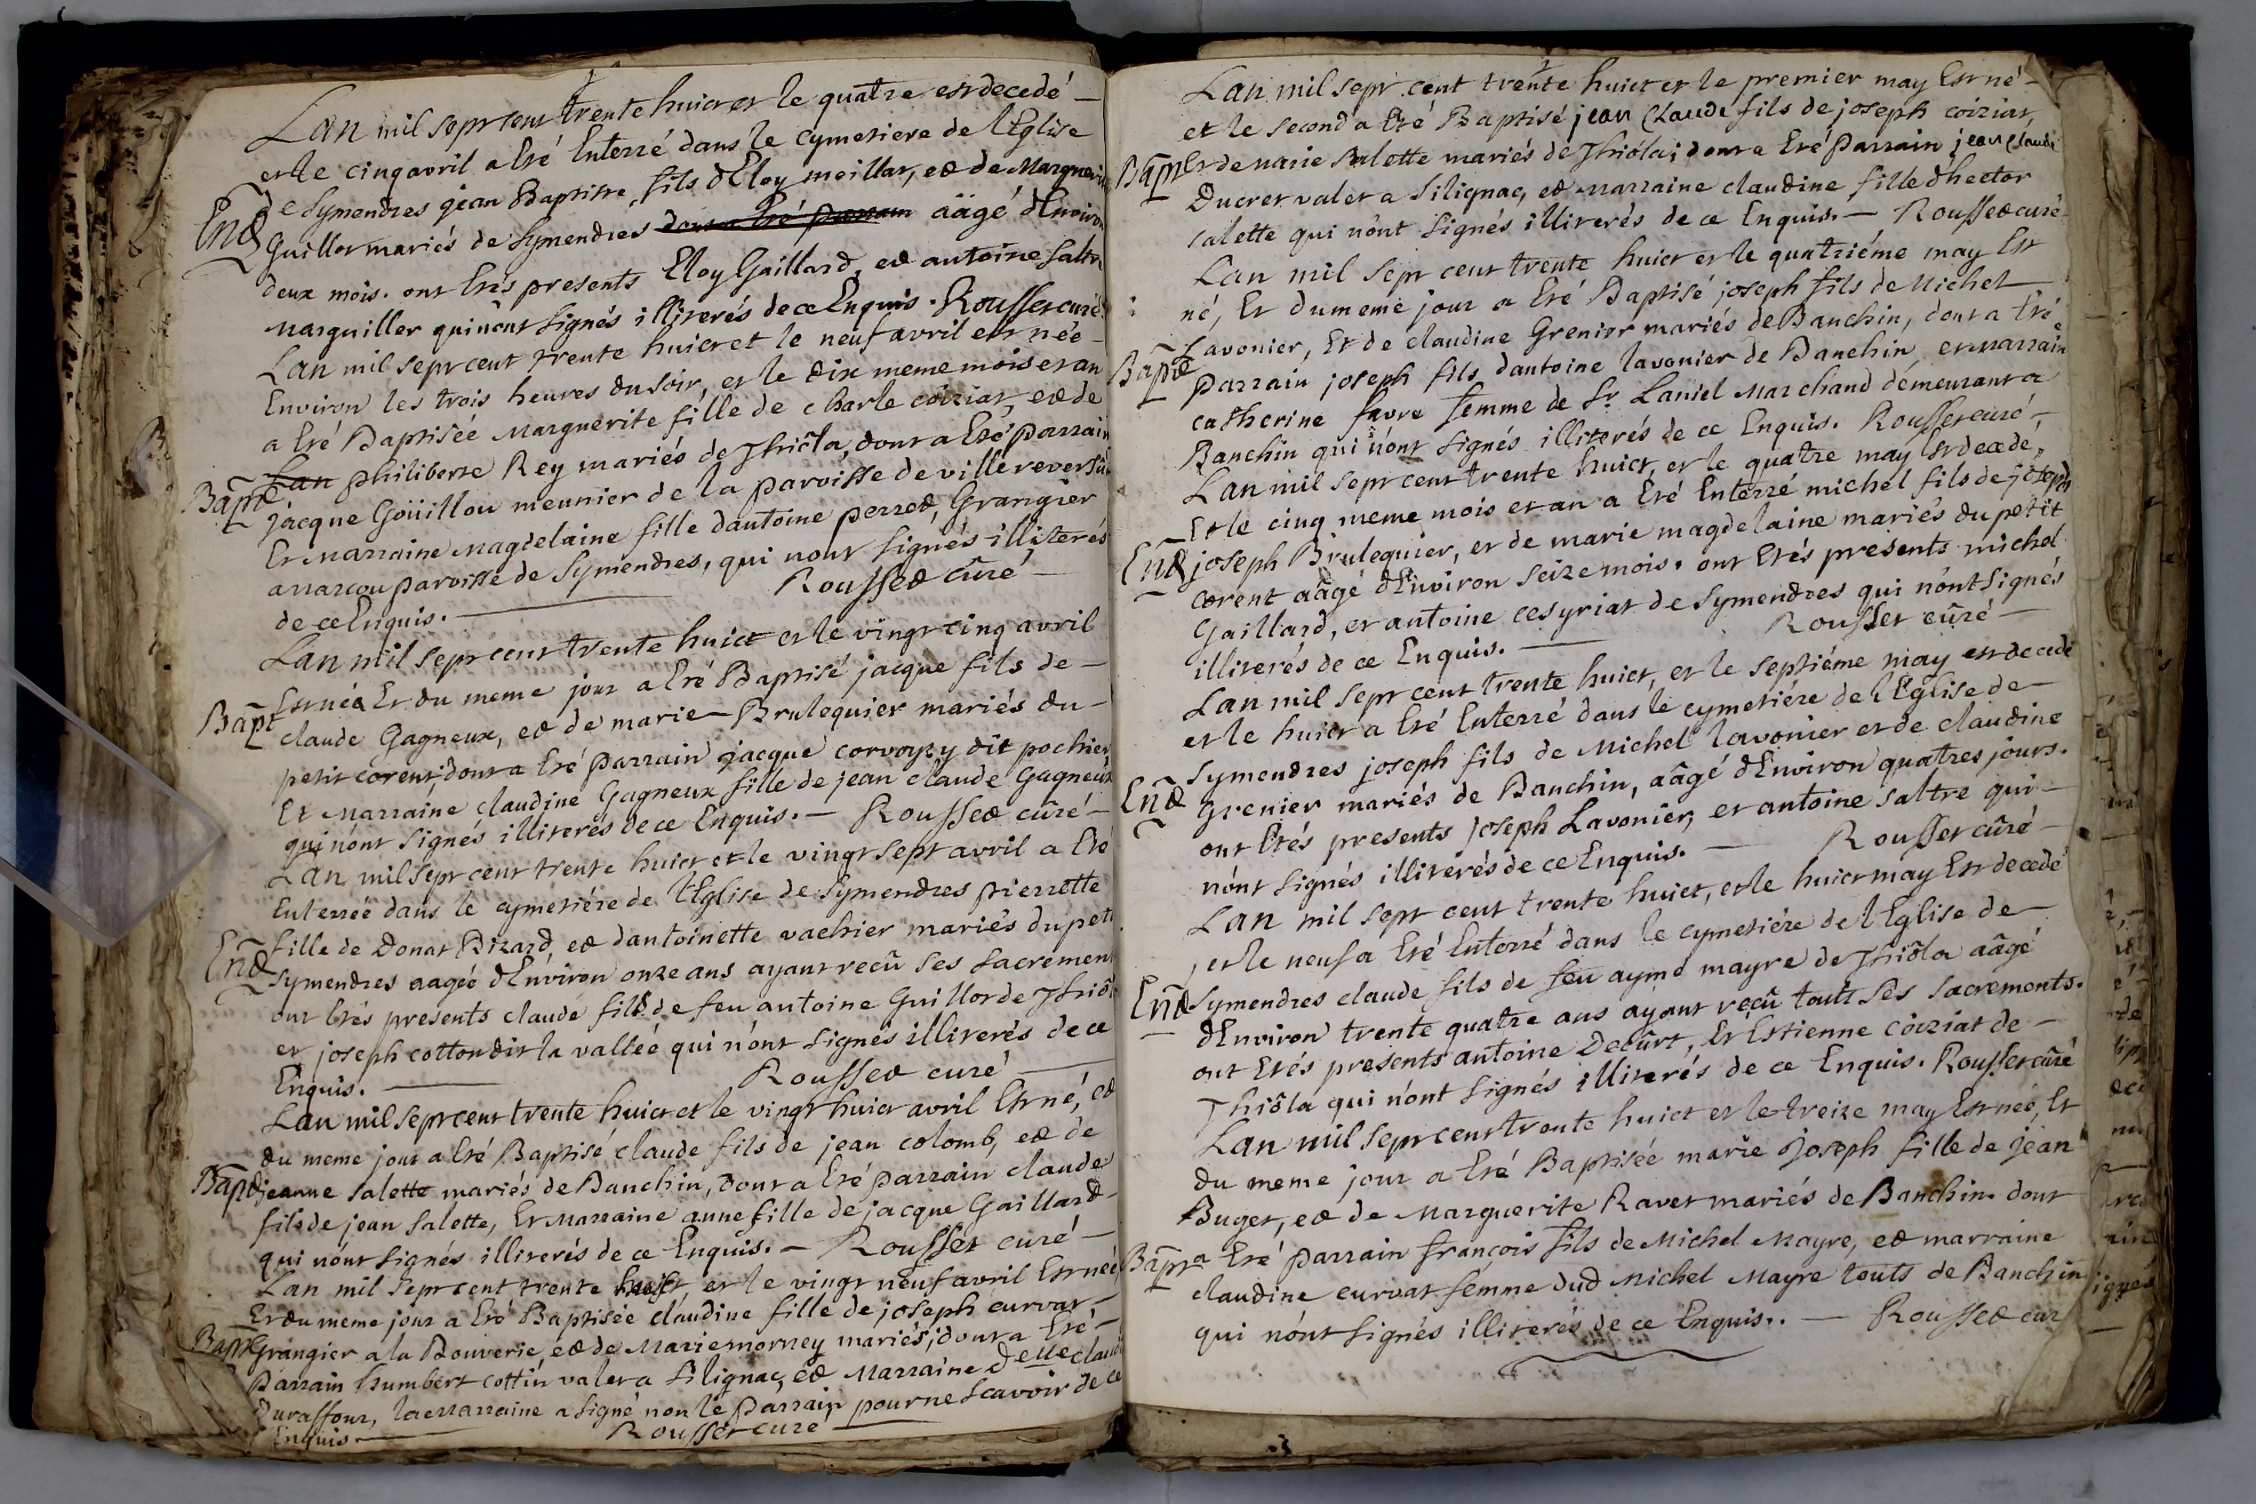 Lan mil sept cent trente huict et le quatre est decedé –
et le cinq avril a Eté Enterré dans le cymetiere de l'Eglise
de Symendres jean Baptiste fils d'Eloy moillar, ed de Marguerite
End
Guillot mariés de Symendres dont a Eté parrain aâgé d'Environ
deux mois. ont Etés presents Eloy Gaillard, ed antoine saltre
Marguiller qui n'ont signés illiterés de ce Enquis. Rousset curé
Lan mil sept cent trente huict et le neuf avril est née –
Environ les trois heures du soir, et le dix meme mois et an
a Eté Baptisée Marguerite fille de charle coiziat, ed de
Bapt
Lan philiberte Rey mariés de Thiôla, dont a Eté parrain
jacque Goüillou meunier de la paroisse de villereversûre
Et Marraine Magdelaine fille dantoine perred, Grangier
a Marcou paroisse de Symendres, qui nont signés illiterés
de ce Enquis. — Roussed cûré –
Lan mil sept cent trente huict et le vingt cinq avril
Est née Et du meme jour a Eté Baptisé jacque fils de –
Bapt
claude Gagneux, ed de marie Brulequier mariés du –
petit corent; dont a Eté parrain jacque corvoysy dit pochier,
Et Marraine claudine Gagneux fille de jean claude Gagneux
qui n'ont signés illiterés de ce Enquis. – Roussed cûré –
Lan mil sept cent trente huict et le vingt sept avril a Eté
Enterrée dans le cymetiére de l'Eglise de Symendres pierrette
fille de Donat Bizard, ed dantoinette vachier mariés du petit
End
Symendres aagée d'Environ onze ans ayant reçû ses sacrements
ont Etés presents claude fils de feu antoine Guillot de Thiôla
et joseph cotton dit la vallée qui n'ont signés illiterés de ce
Enquis. — Roussed curé —
Lan mil sept cent trente huict et le vingt huict avril Est né, ed
du meme jour a Eté Baptisé claude fils de jean colomb, ed de
Bapd
jeanne salette mariés de Banchin, dont a Eté parrain claude
fils de jean salette, Et Marraine anne fille de jacque Gaillard –
qui n'ont signés illiterés de ce Enquis. – Rousset curé –
Lan mil sept cent trente huict, et le vingt neuf avril Est née
Et du meme jour a Eté Baptisée claudine fille de joseph curvat –
Bapt
Grangier a la Bouverie, ed de Marie morney mariés; dont a Eté –
Parrain humbert cottin valet a Silignac, ed Marraine Delle claudine
Duraffour, la Marraine a signé non le Parrain pour ne scavoir de ce
Enquis — Rousset curé —
Lan mil sept cent trente huict et le premier may Est né –
et le second a Eté Baptisé jean Claude fils de joseph coiziat,
Bapt
Et de Marie salette mariés de Thiôla; dont a Eté Parrain jean Claude
Ducret valet a Silignac, ed Marraine claudine fille dhector
salette qui n'ont signés illiterés de ce Enquis. – Roussed curé
Lan mil sept cent trente huict et le quatriéme may Est
né, Et du meme jour a Eté Baptisé joseph fils de Michel
Lavonier, Et de claudine Grenier mariés de Banchin, dont a Eté
Bapd
parrain joseph fils dantoine lavonier de Banchin, et Marraine
catherine favre femme de Sr. Laniel Marchand démeurant a
Banchin qui n'ont signés illiterés de ce Enquis. Rousset curé –
Lan mil sept cent trente huict, et le quatre may Est decedé,
Et le cinq meme mois et an a Eté Enterré michel fils de joseph
End
joseph Brulequier, et de marie magdelaine mariés du petit
corent aâgé d'Environ seize mois. ont Etés presents michel
Gaillard, et antoine cesyriat de Symendres qui n'ont signés
illiterés de ce Enquis. — Rousset cûré –
Lan mil sept cent trente huict, et le septiéme may est decedé
et le huict a Eté Enterré dans le cymetiére de l'Eglise de –
Symendres joseph fils de Michel lavonier et de claudine
End
Grenier mariés de Banchin, aâgé d'Environ quatres jours.
ont Etés presents joseph Lavonier, et antoine saltre qui –
n'ont signés illiterés de ce Enquis. — Rousset cûré –
Lan mil sept cent trente huict, et le huict may Est decedé
, et le neuf a Eté Enterré dans le cymetiére de l'Eglise de –
End
Symendres claude fils de feu aymé mayre de Thiôla aâgé
d'Environ trente quatre ans ayant reçû touts ses sacrements.
ont Etés presents antoine Decûrt, Et Estienne côiziat de –
Thiôla qui n'ont signés illiterés de ce Enquis. Rousset cûré
Lan mil sept cent trente huict et le treize may Est née, Et
du meme jour a Eté Baptisée marie joseph fille de jean
Buget, ed de Marguerite Ravet mariés de Banchin. dont
Bapt
a Eté parrain françois fils de Michel Mayre, ed marraine
claudine curvat femme dud Michel Mayre touts de Banchin
qui n'ont signés illiterés de ce Enquis. . — Roussed cur